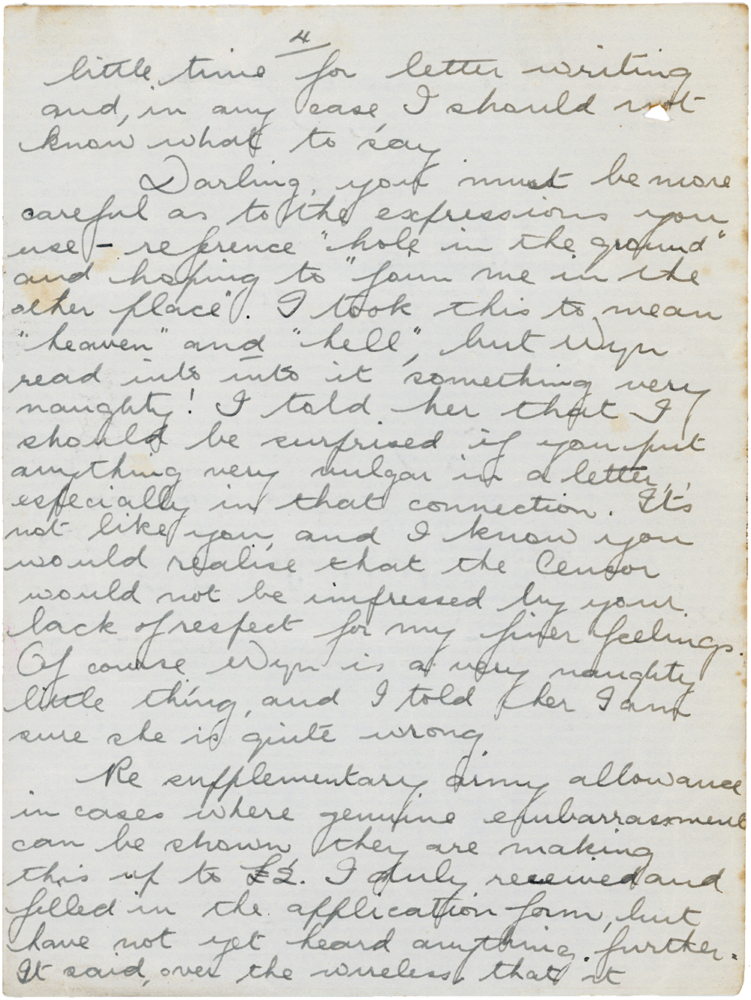 4
little time for letter writing
and, in any case I should not
know what to say
Darling, you must be more
careful as to the expressions you
use - reference "hole in the ground"
and hoping to "join me in the
other place". I took this to mean
"heaven" and "hell", but Wyn
read into into it something very
naughty! I told her that I
should be surprised if you put
anything very vulgar in a letter,
especially in that connection. It's
not like you, and I know you
would realise that the Censor
would not be impressed by your
lack of respect for my finer feelings.
Of course Wyn is a very naughty
little thing, and I told her I am
sure she is quite wrong
Re supplementary army allowance
in cases where genuine embarrassment
can be shown they are making
this up to £2. I duly received and
filled in the application form, but
have not yet heard anything further.
It said, over the wireless, that it